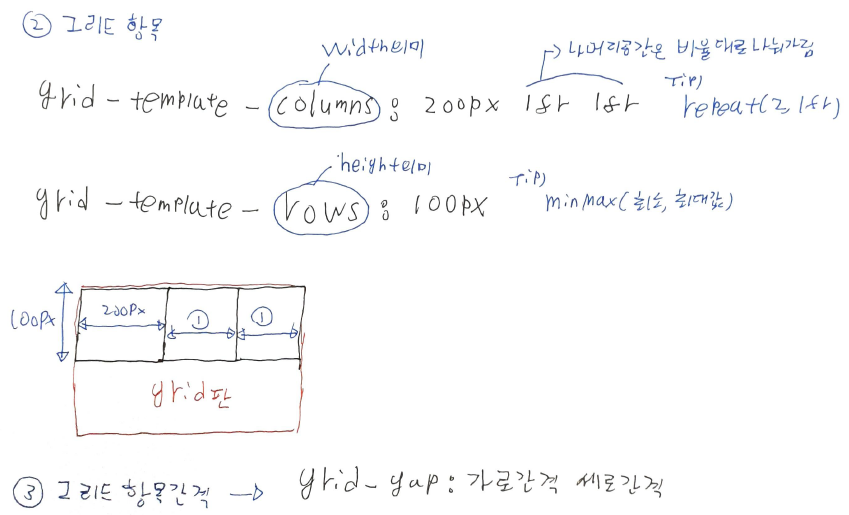 ② 그리드 항목
width의미
나머지공간은 비율대로 나눠가짐
grid-template-columns: 200px 1fr 1fr
Tip)
repeat(2, 1fr)
height의미
grid-template-rows: 100px
Tip)
minmax(최소, 최대값)
100px
200px ① ①
grid판
③ 그리드 항목간격 → grid-gap: 가로간격 세로간격